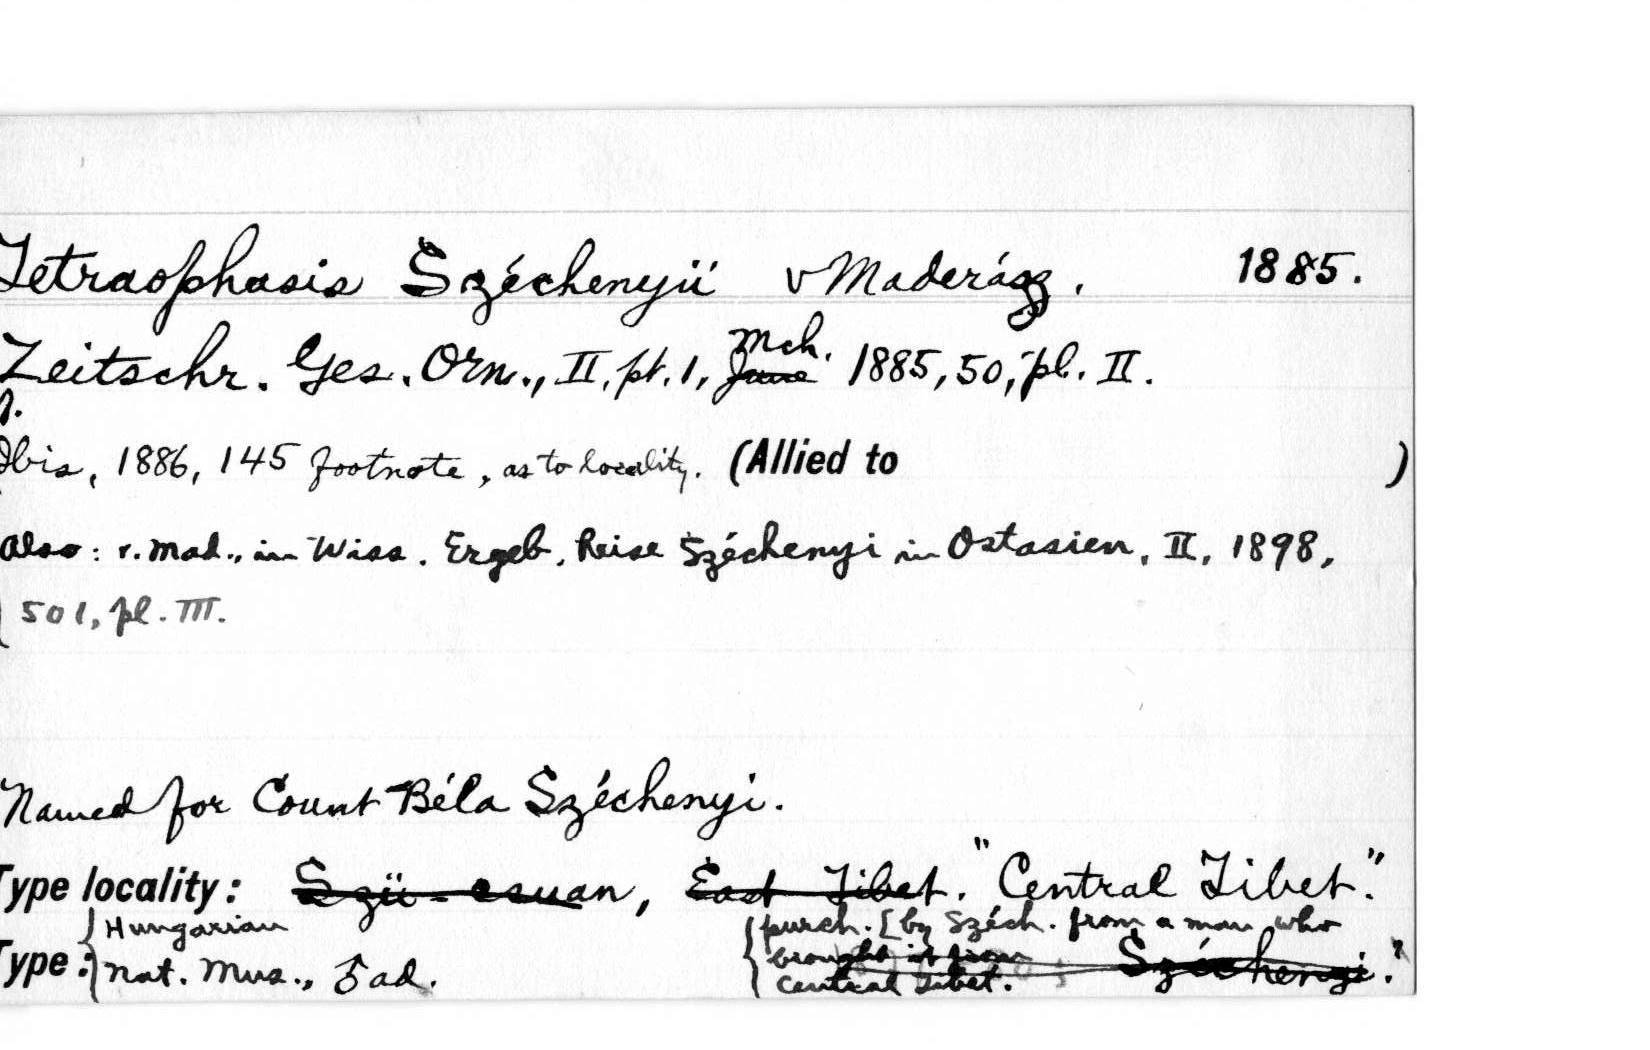 Tetraophasis Széchenyii v Maderász. 1885.
Mch.
Zeitschr. Ges. Orn., II, pt. 1, June 1885, 50, pl. II.
Ibis, 1886, 145 footnote, as to locality. (Allied to )
Also: v. Mad., in Wiss. Ergeb. Reise Széchenyi in Ostasien, II, 1898,
501, pl. III.
Named for Count Béla Széchenyi.
Type locality: Szü-csuan, East Tibet. "Central Tibet."
Hungarian
Type: Nat. Mus., 5 ad.
{purch. [by Széch. from a man who
brought it from Széchenyi.
Central Tibet.